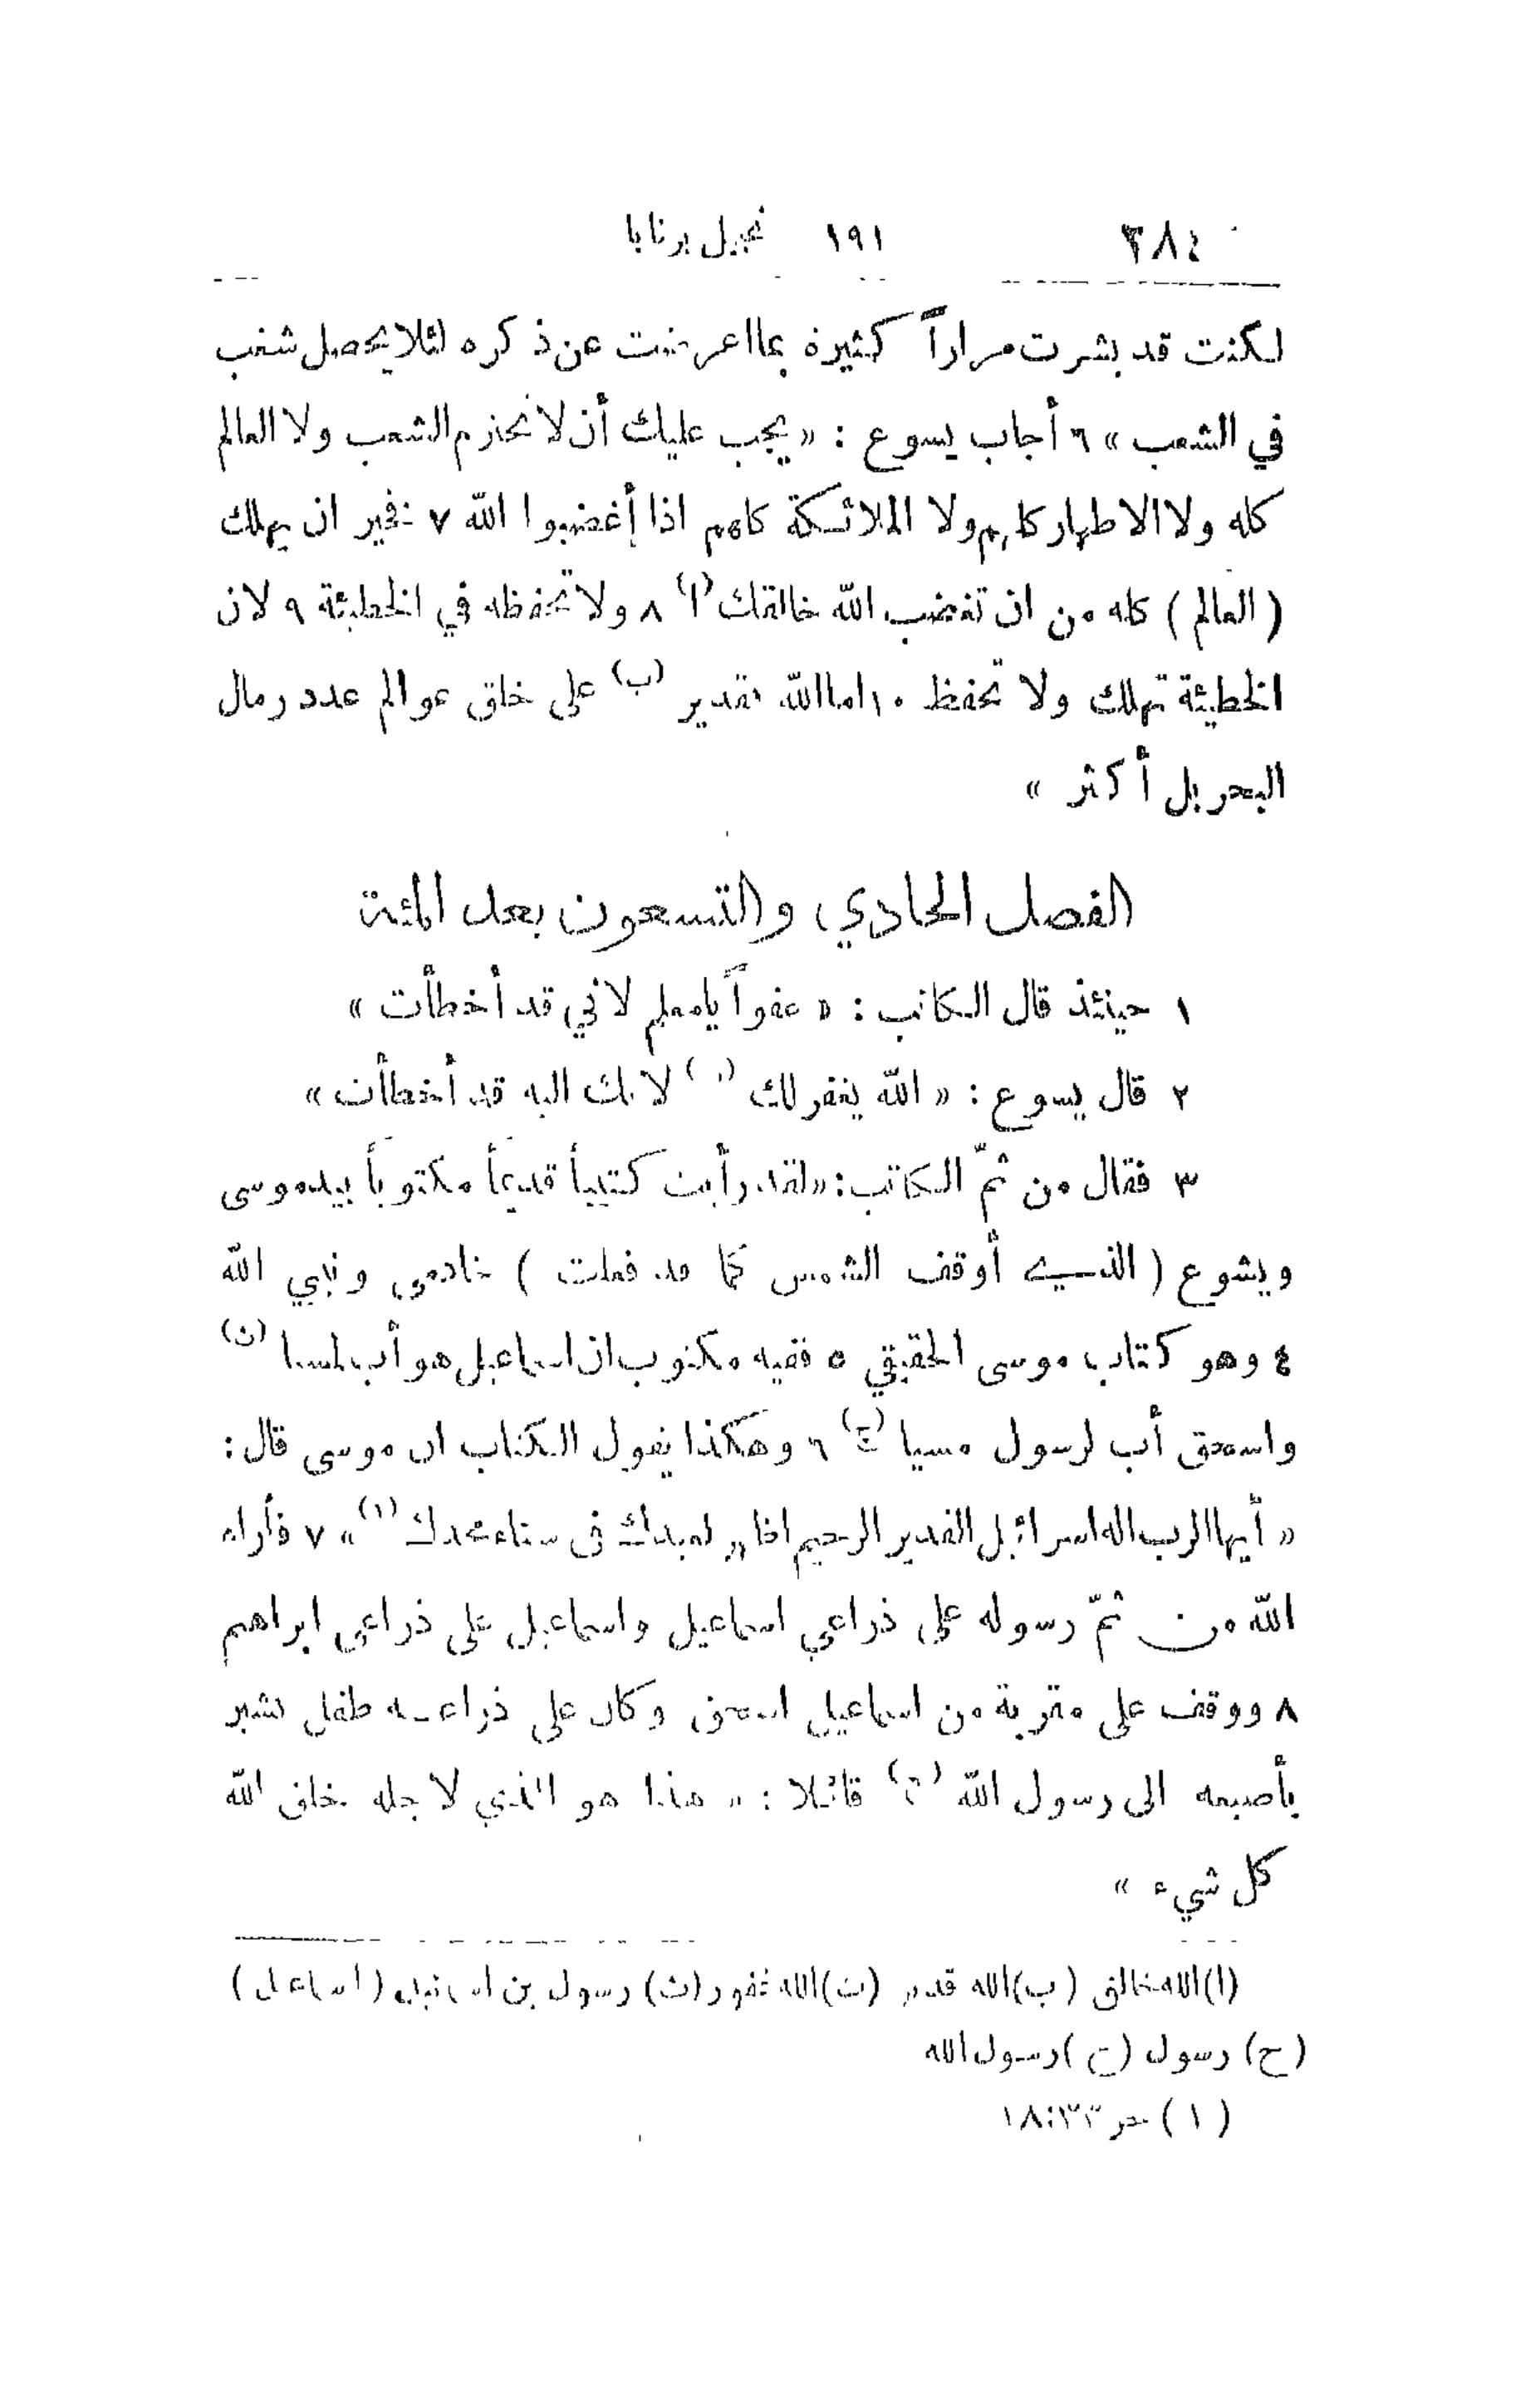 ٢٨٤ ١٩١ نجيل برنابا
لكنت قد بشرت مراراً كثيرة بما اعرضت عن ذكره لئلا يحصل شغب
في الشعب » ٦ أجاب يسوع : « يجب عليك أن لا تحترم الشعب ولا العالم
كله ولا الاطهار كلهم ولا الملائكة كلهم اذا أغضبوا الله ٧ فخير ان يهلك
( العالم ) كله من ان تغضب الله خالقك (ا) ٨ ولا تحفظه في الخطيئة ٩ لان
الخطيئة تهلك ولا تحفظ ١٠ اما الله فقدير (ب) على خلق عوالم عدد رمال
البحر بل أكثر »
الفصل الحادي والتسعون بعد المئة
١ حينئذ قال الكاتب : « عفواً يا معلم لاني قد أخطأت »
٢ قال يسوع : « الله يغفر لك لانك اليه قد أخطأت »
٣ فقال من ثمّ الكاتب : « لقد رأيت كتيباً قديماً مكتوباً بيد موسى
ويشوع ( الذي أوقف الشمس كما قد فعلت ) خادمي ونبيي الله
٤ وهو كتاب موسى الحقيقي ٥ ففيه مكتوب ان اسماعيل هو أب لمسيا (ث)
واسحق أب لرسول مسيا (ج) ٦ وهكذا يقول الكتاب ان موسى قال :
« أيها الرب اله اسرائيل القدير الرحيم اظهر لعبدك في سناء مجدك (١) » ٧ فأراه
الله من ثمّ رسوله على ذراعي اسماعيل واسماعيل على ذراعي ابراهيم
٨ ووقف على مقربة من اسماعيل اسحق وكان على ذراعيه طفل يشير
بأصبعه الى رسول الله قائلا : « هذا هو الذي لاجله خلق الله
كل شيء »
(ا) الله خالق (ب) الله قدير (ت) الله غفور (ث) رسول بن ( اسماعيل )
(ج) رسول رسول الله
( ١ ) خر ٣٣:١٨